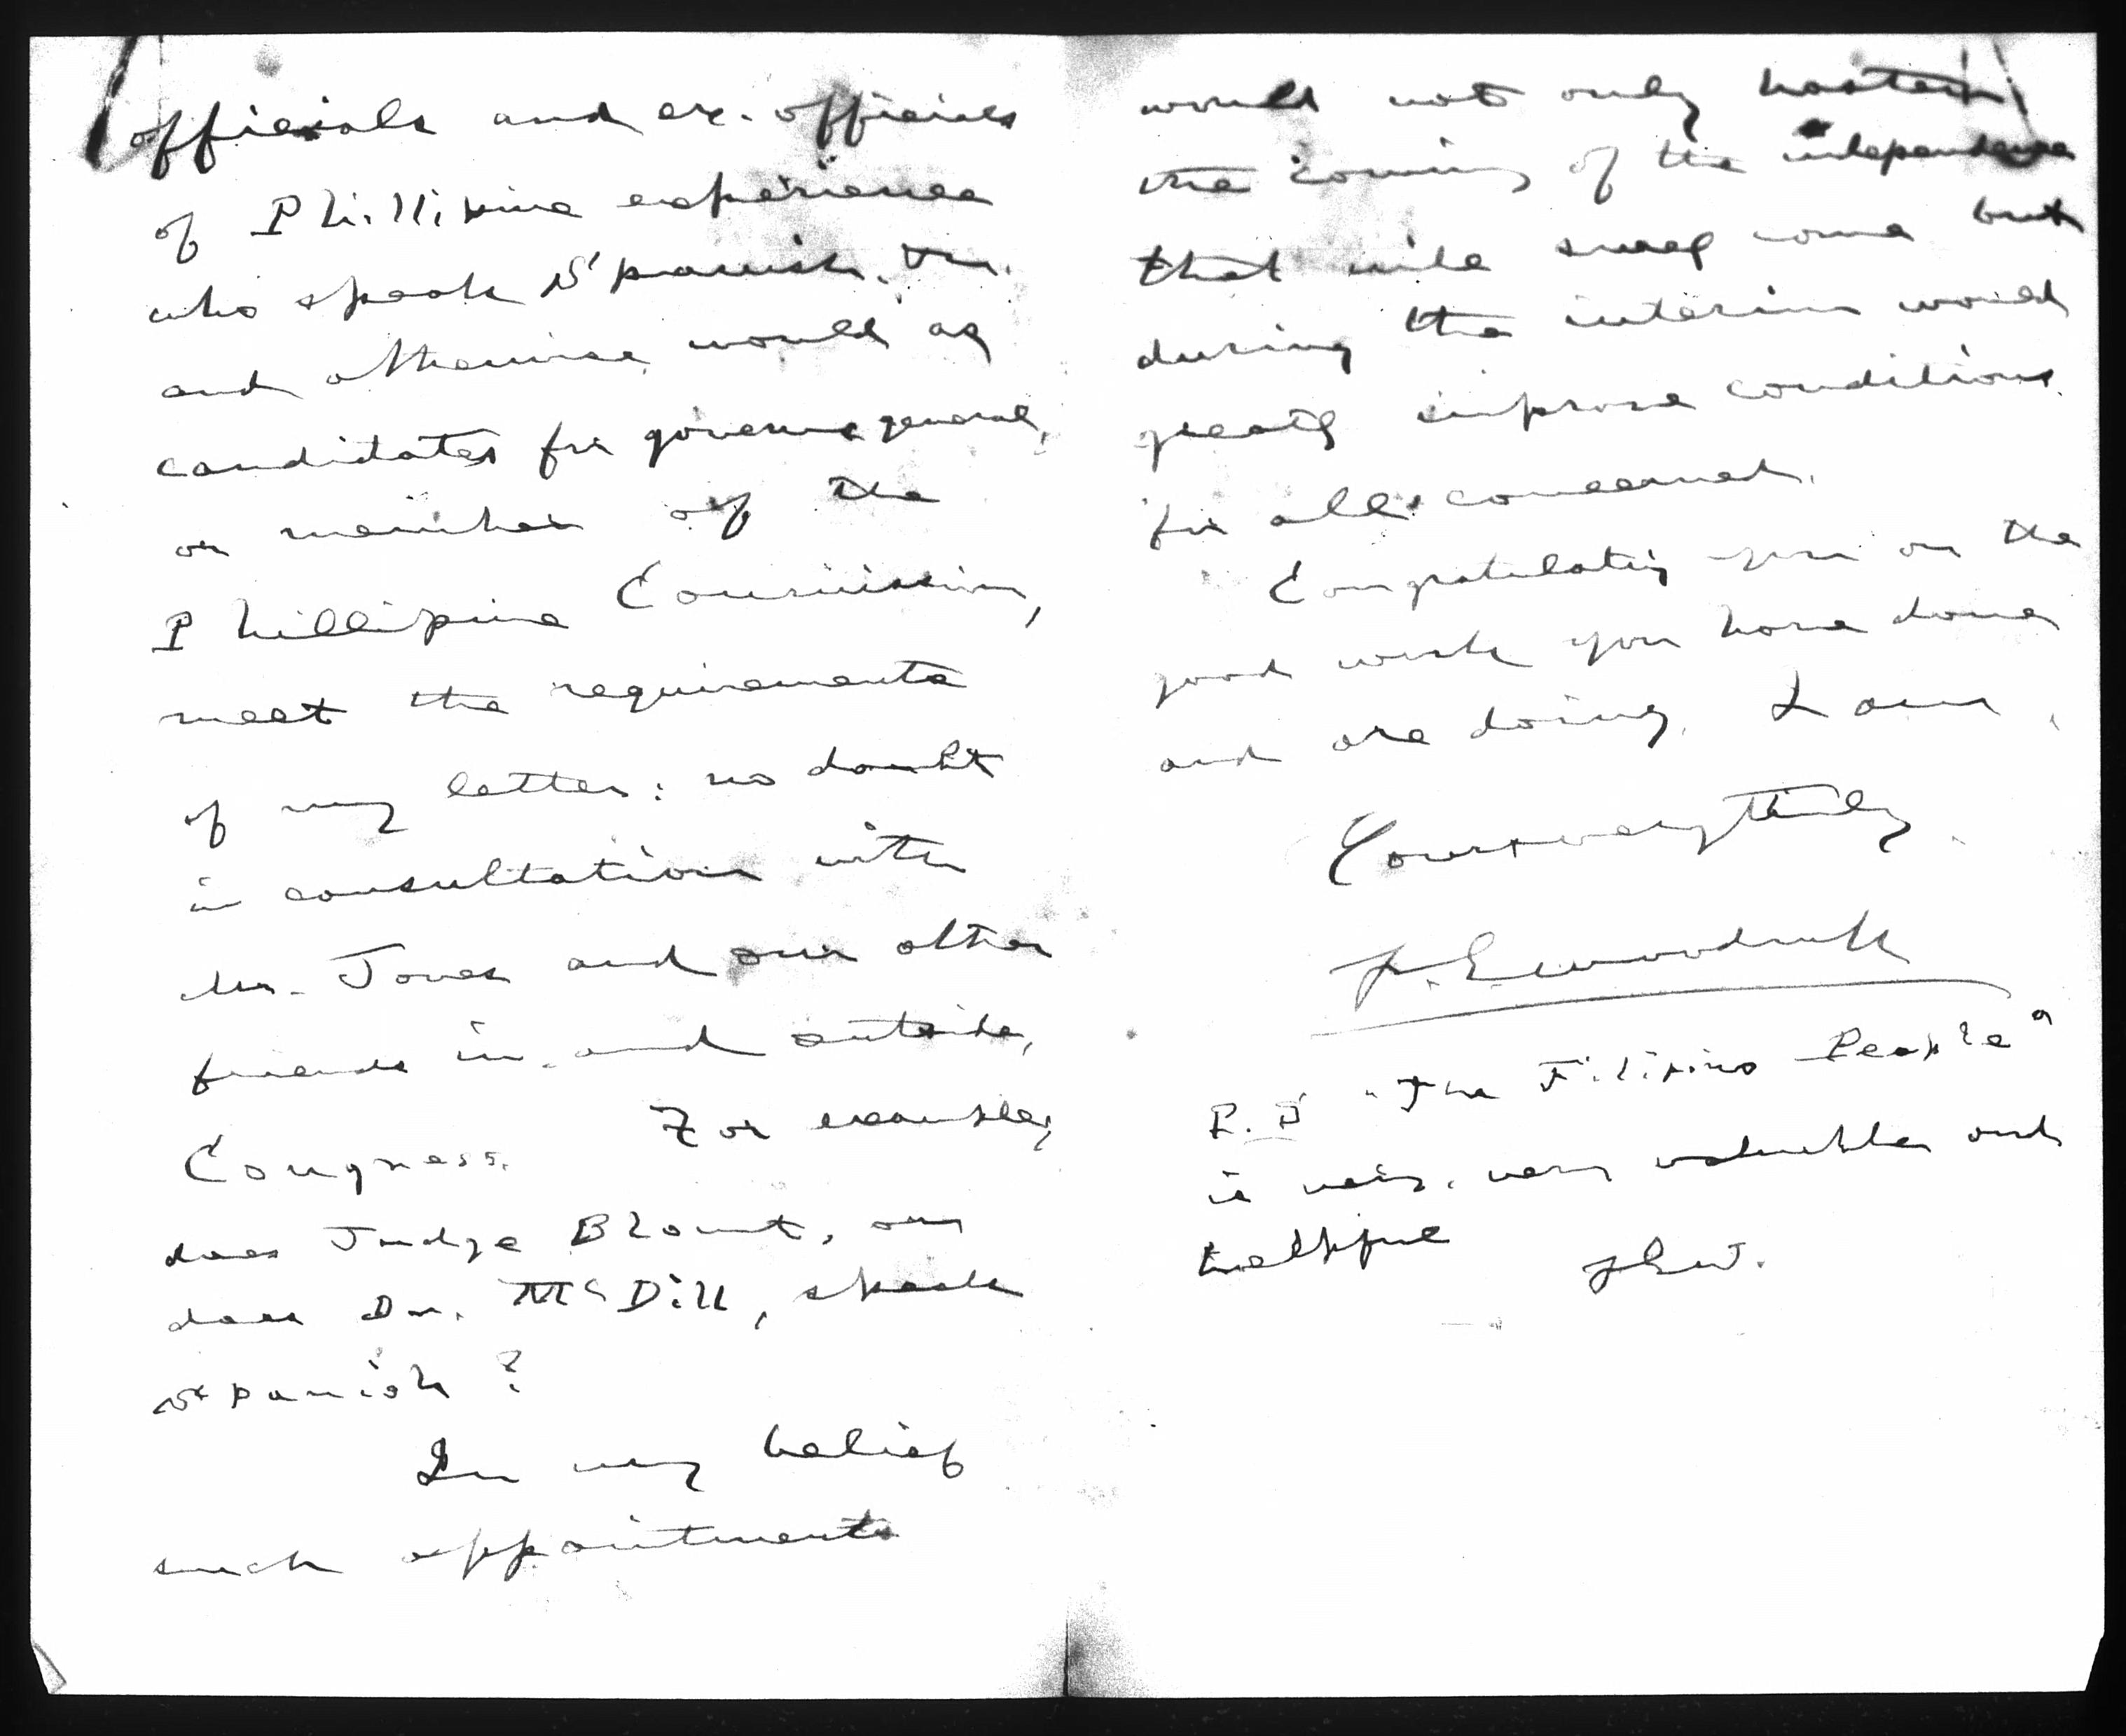 officials and ex. officials
of Phillipine experience
who speak Spanish.
and otherwise, would as
candidates for governor general,
or member of the
Phillipine Commission,
meet the requirements
of my letter: no doubt
in consultation with
Mr. Jones and our other
friends in and outside,
Congress. For example,
does Judge Blount, or
does Dr. McDill, speak
Spanish?
In my belief
such appointments
would not only hasten
the coming of the independence
that will surely come but
during the interim would
greatly improve conditions
for all concerned.
Congratulating you on the
good work you have done
and are doing, I am,
Yours very truly
E. Woodruff
P. S "The Filipino People"
is very, very valuable and
helpful